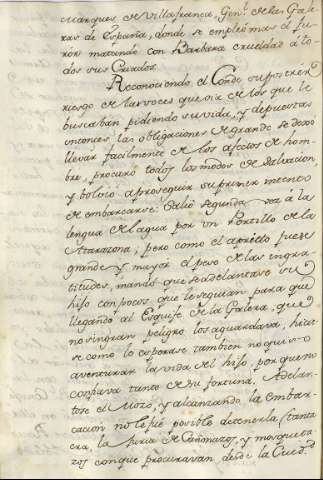 Marques de Villafranca, Gen.l de las Gale
ras de España, donde se empleó mas el fu
ror matando con Barbara crueldad á to
dos sus Criados.
Reconociendo el Conde su postrer
riesgo de las voces que oia de los que le
buscaban pidiendo su vida, y depuestas
entonces las obligaciones de grande se dexó
llevar facilmente de los afectos de hom
bre, procuró todos los modos de salvacion,
y bolvió a proseguir su primer intento
de embarcarse. Salió segunda vez á la
lengua del agua por un Portillo de la
Atarazana; pero como el aprieto fuese
grande y mayor el peso de las ingra
titudes, mandó que se adelantase su
hijo con pocos que le seguian para que
llegando al Esquife de la Galera, que
no sin gran peligro los aguardava, hicie
se como lo esperase tambien no quiso
aventurar la vida del hijo, porque no
confiava tanto de su fortuna. Adelan
tose el Mozo, y alcanzando la embar
cacion no le fue posible detenerla (tanta
era la furia de Cañonazos, y mosqueta
zos con que procuravan desde la Ciud.d